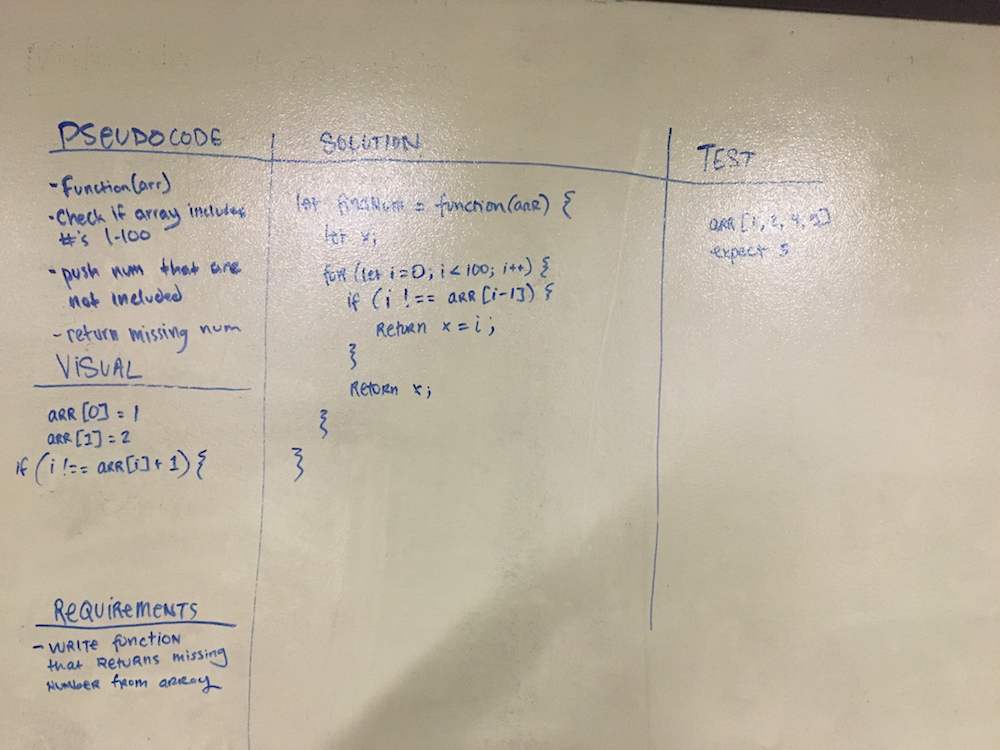 PSEUDOCODE
- Function(arr)
- Check if array includes
#'s 1-100
- push num that are
not included
- return missing num
VISUAL
ARR [0] = 1
ARR [1] = 2
if (i !== ARR[i] + 1) {
REQUIREMENTS
- WRITE function
that RETURNS missing
NUMBER from ARRAY
SOLUTION
let findNum = function(arr) {
let x;
for (let i=0; i < 100; i++) {
if (i !== ARR [i-1]) {
RETURN x = i ;
}
RETURN x ;
}
}
TEST
ARR [1, 2, 4, 5]
expect 3